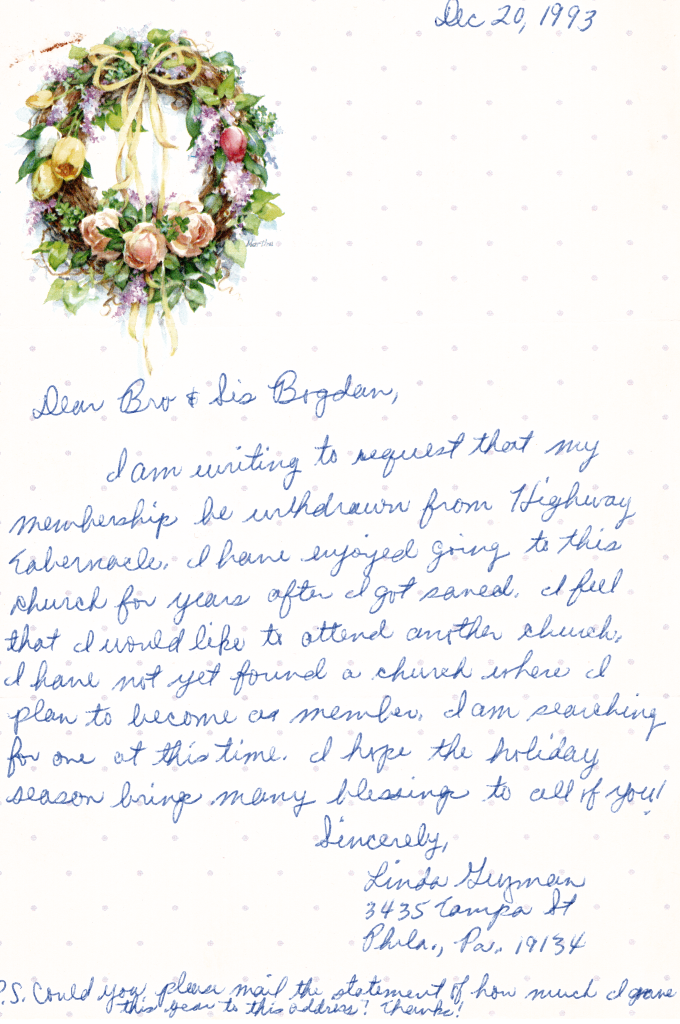 Dec 20, 1993
Martha
Dear Bro & Sis Bogdan,
I am writing to request that my
membership be withdrawn from Highway
Tabernacle. I have enjoyed going to this
church for years after I got saved. I feel
that I would like to attend another church.
I have not yet found a church where I
plan to become a member. I am searching
for one at this time. I hope the holiday
season bring many blessings to all of you!
Sincerely,
Linda Guzman
3435 Tampa St
Phila., Pa. 19134
P.S. Could you please mail the statement of how much I gave
this year to this address? Thanks!